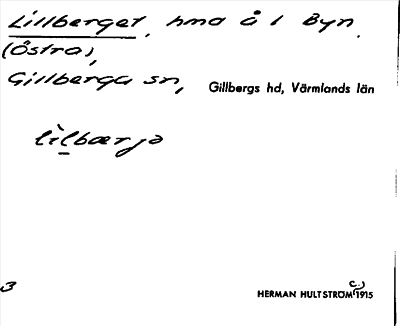 Lillberget, hma å 1 Byn
(Östra),
Gillberga sn, Gillbergs hd, Värmlands län
lìlbærjə
3
HERMAN HULTSTRÖM (c.) 1915